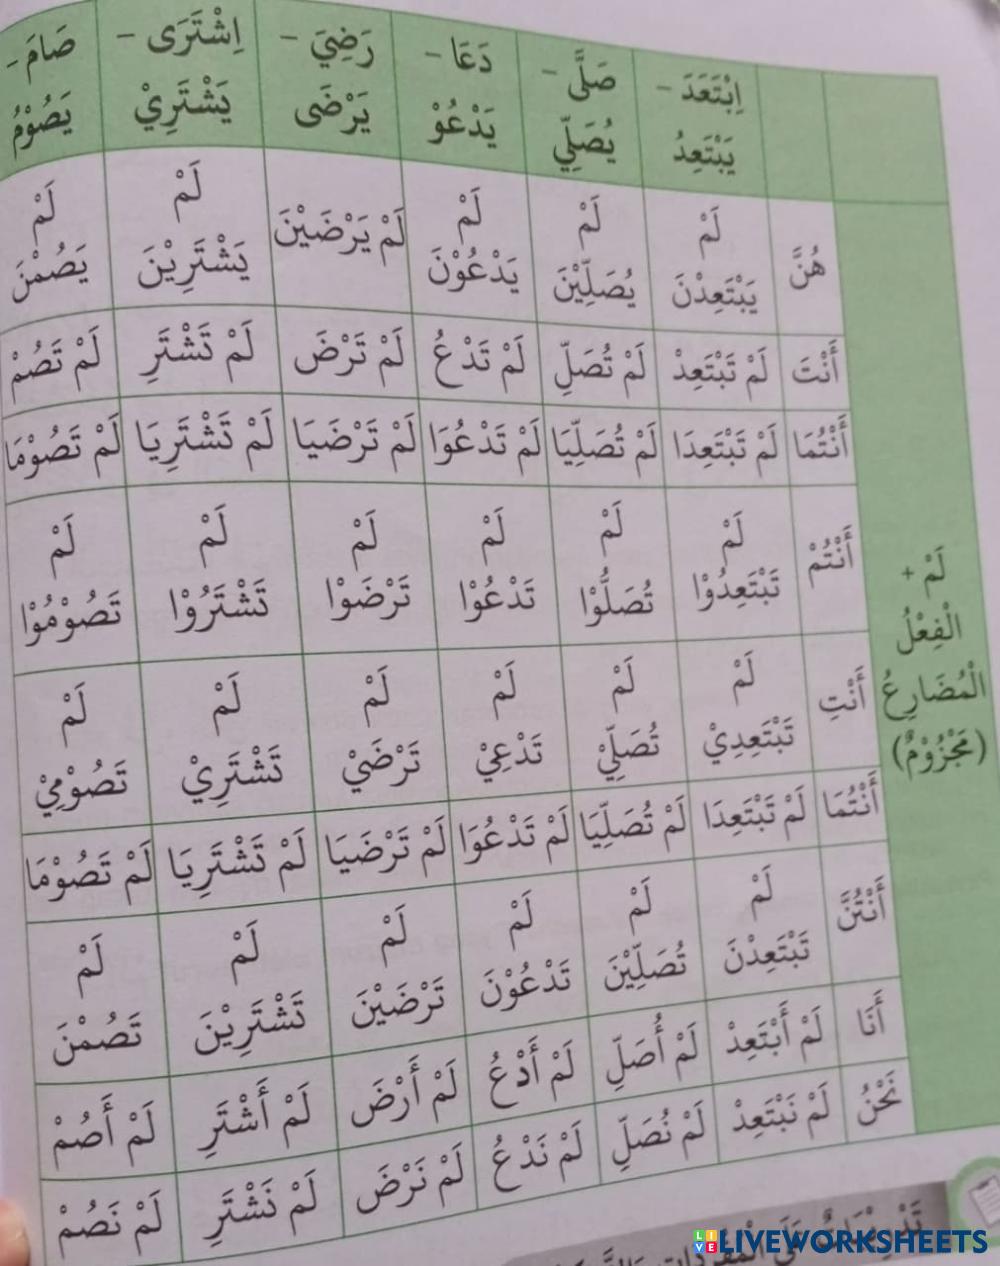 اِبْتَعَدَ - يَبْتَعِدُ صَلَّى - يُصَلِّي دَعَا - يَدْعُوْ رَضِيَ - يَرْضَى اِشْتَرَى - يَشْتَرِيْ صَامَ - يَصُوْمُ
لَمْ + الْفِعْلُ الْمُضَارِعُ (مَجْزُوْمٌ)
هُنَّ لَمْ يَبْتَعِدْنَ لَمْ يُصَلِّيْنَ لَمْ يَدْعُوْنَ لَمْ يَرْضَيْنَ لَمْ يَشْتَرِيْنَ لَمْ يَصُمْنَ
أَنْتَ لَمْ تَبْتَعِدْ لَمْ تُصَلِّ لَمْ تَدْعُ لَمْ تَرْضَ لَمْ تَشْتَرِ لَمْ تَصُمْ
أَنْتُمَا لَمْ تَبْتَعِدَا لَمْ تُصَلِّيَا لَمْ تَدْعُوَا لَمْ تَرْضَيَا لَمْ تَشْتَرِيَا لَمْ تَصُوْمَا
أَنْتُمْ لَمْ تَبْتَعِدُوْا لَمْ تُصَلُّوْا لَمْ تَدْعُوْا لَمْ تَرْضَوْا لَمْ تَشْتَرُوْا لَمْ تَصُوْمُوْا
أَنْتِ لَمْ تَبْتَعِدِيْ لَمْ تُصَلِّيْ لَمْ تَدْعِيْ لَمْ تَرْضَيْ لَمْ تَشْتَرِيْ لَمْ تَصُوْمِيْ
أَنْتُمَا لَمْ تَبْتَعِدَا لَمْ تُصَلِّيَا لَمْ تَدْعُوَا لَمْ تَرْضَيَا لَمْ تَشْتَرِيَا لَمْ تَصُوْمَا
أَنْتُنَّ لَمْ تَبْتَعِدْنَ لَمْ تُصَلِّيْنَ لَمْ تَدْعُوْنَ لَمْ تَرْضَيْنَ لَمْ تَشْتَرِيْنَ لَمْ تَصُمْنَ
أَنَا لَمْ أَبْتَعِدْ لَمْ أُصَلِّ لَمْ أَدْعُ لَمْ أَرْضَ لَمْ أَشْتَرِ لَمْ أَصُمْ
نَحْنُ لَمْ نَبْتَعِدْ لَمْ نُصَلِّ لَمْ نَدْعُ لَمْ نَرْضَ لَمْ نَشْتَرِ لَمْ نَصُمْ
LIVEWORKSHEETS